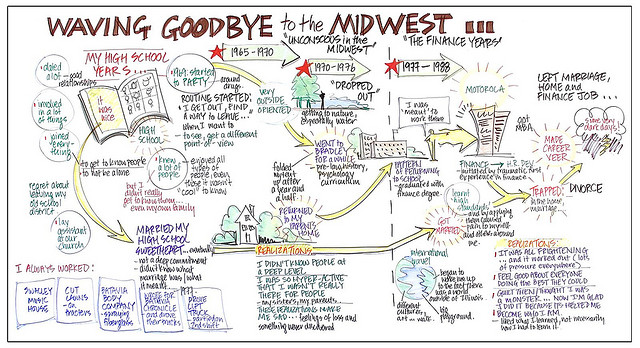 WAVING GOODBYE to the MIDWEST ...
MY HIGH SCHOOL
YEARS...
• dated
a lot — good
relationships
• involved
in a lot
of things
• joined
everything
it was
nice
HIGH
SCHOOL
to get to know people
to not be alone
1969: started
to PARTY
around
drugs.
ROUTINE STARTED:
"I GET OUT, FIND
A WAY TO LEAVE...
when I want
to see, get a different
point-of-view
• knew
a lot of
people
enjoyed all
types of people,
even
things it wasn't
"cool" to
know
but I
didn't really
get to know them
even my own family
regret about
leaving my
old school
district
• lay
assistant
at our
church
MARRIED MY
HIGH SCHOOL
SWEETHEART... eventually
not a deep commitment
didn't know what
marriage was/what
it meant
I ALWAYS WORKED:
SHIRLEY
MUSIC
HOUSE
CUT
LAWNS
on
tractors
BATAVIA
BODY
COMPANY
spraying
fiberglass
WROTE FOR
BATAVIA
CHRONICLE
and drove
their trucks
1977
DROVE
LIFT
TRUCK
2nd shift
1965-1970
"UNCONSCIOUS in the
MIDWEST"
very
OUTSIDE
ORIENTED
1970-1976
"DROPPED
OUT"
getting to nature,
especially water
WENT to
BRADLEY
FOR A WHILE
pre-law, history,
psychology
curriculum
folded
my tent
up after
a year
and a
half.
RETURNED to
MY PARENTS
HOME
REALIZATIONS:
I DIDN'T KNOW PEOPLE
at A DEEP LEVEL
I WAS SO HYPER-ACTIVE
THAT I WASN'T REALLY
THERE FOR PEOPLE
my sisters, my parents...
THESE REALIZATIONS MAKE
ME SAD... feelings of loss and
something never discovered
"THE FINANCE YEARS"
1977-1988
I was
"meant" to
work there
MOTOROLA
GOT
MBA
PATTERN
OF RETURNING
to SCHOOL...
graduated with
finance degree
FINANCE → H.R. DEV
initiated by traumatic first
experience in finance
learnt
high
standards
and by applying
them caused
pain to myself
and others around
me
GOT
MARRIED
International
travel
began to
wake me up
to the fact there
was a world
outside of Illinois
different
cultures,
art ... wake
big
playground.
LEFT MARRIAGE,
HOME and
FINANCE JOB...
MADE
CAREER
VEER
some very
dark days
TRAPPED
in the job and marriage
DIVORCE
REALIZATIONS:
IT WAS ALL FRIGHTENING
... and it worked out (lots
of pressure everywhere)
I FEEL GOOD ABOUT EVERYONE
DOING THE BEST THEY COULD
GUILT THEN/THOUGHT I WAS
A MONSTER... NOW I'M GLAD
I DID IT BECAUSE IT'S HELPED ME
BECOME WHO I AM.
liked why I learned, not necessarily
how I had to learn it.